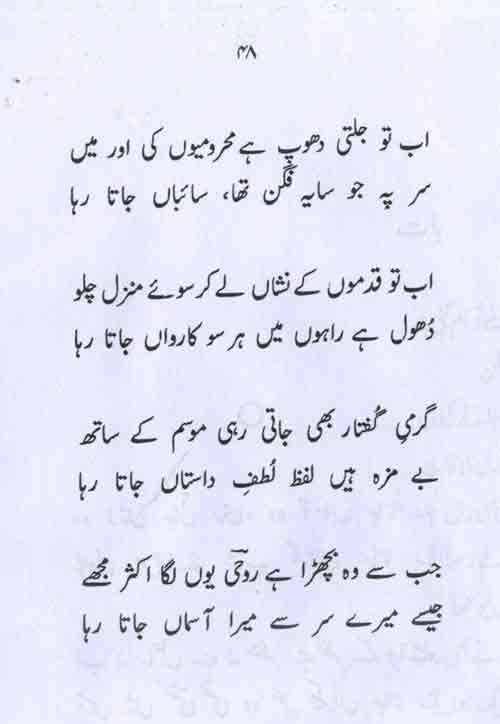 ۴۸
اب تو جلتی دھوپ ہے محرومیوں کی اور میں
سر پہ جو سایہ فگن تھا، سائباں جاتا رہا
اب تو قدموں کے نشاں لے کر سوئے منزل چلو
دُھول ہے راہوں میں ہر سو کارواں جاتا رہا
گرمیِ گُفتار بھی جاتی رہی موسم کے ساتھ
بے مزہ ہیں لفظ لُطفِ داستاں جاتا رہا
جب سے وہ بچھڑا ہے روحیؔ یوں لگا اکثر مجھے
جیسے میرے سر سے میرا آسماں جاتا رہا